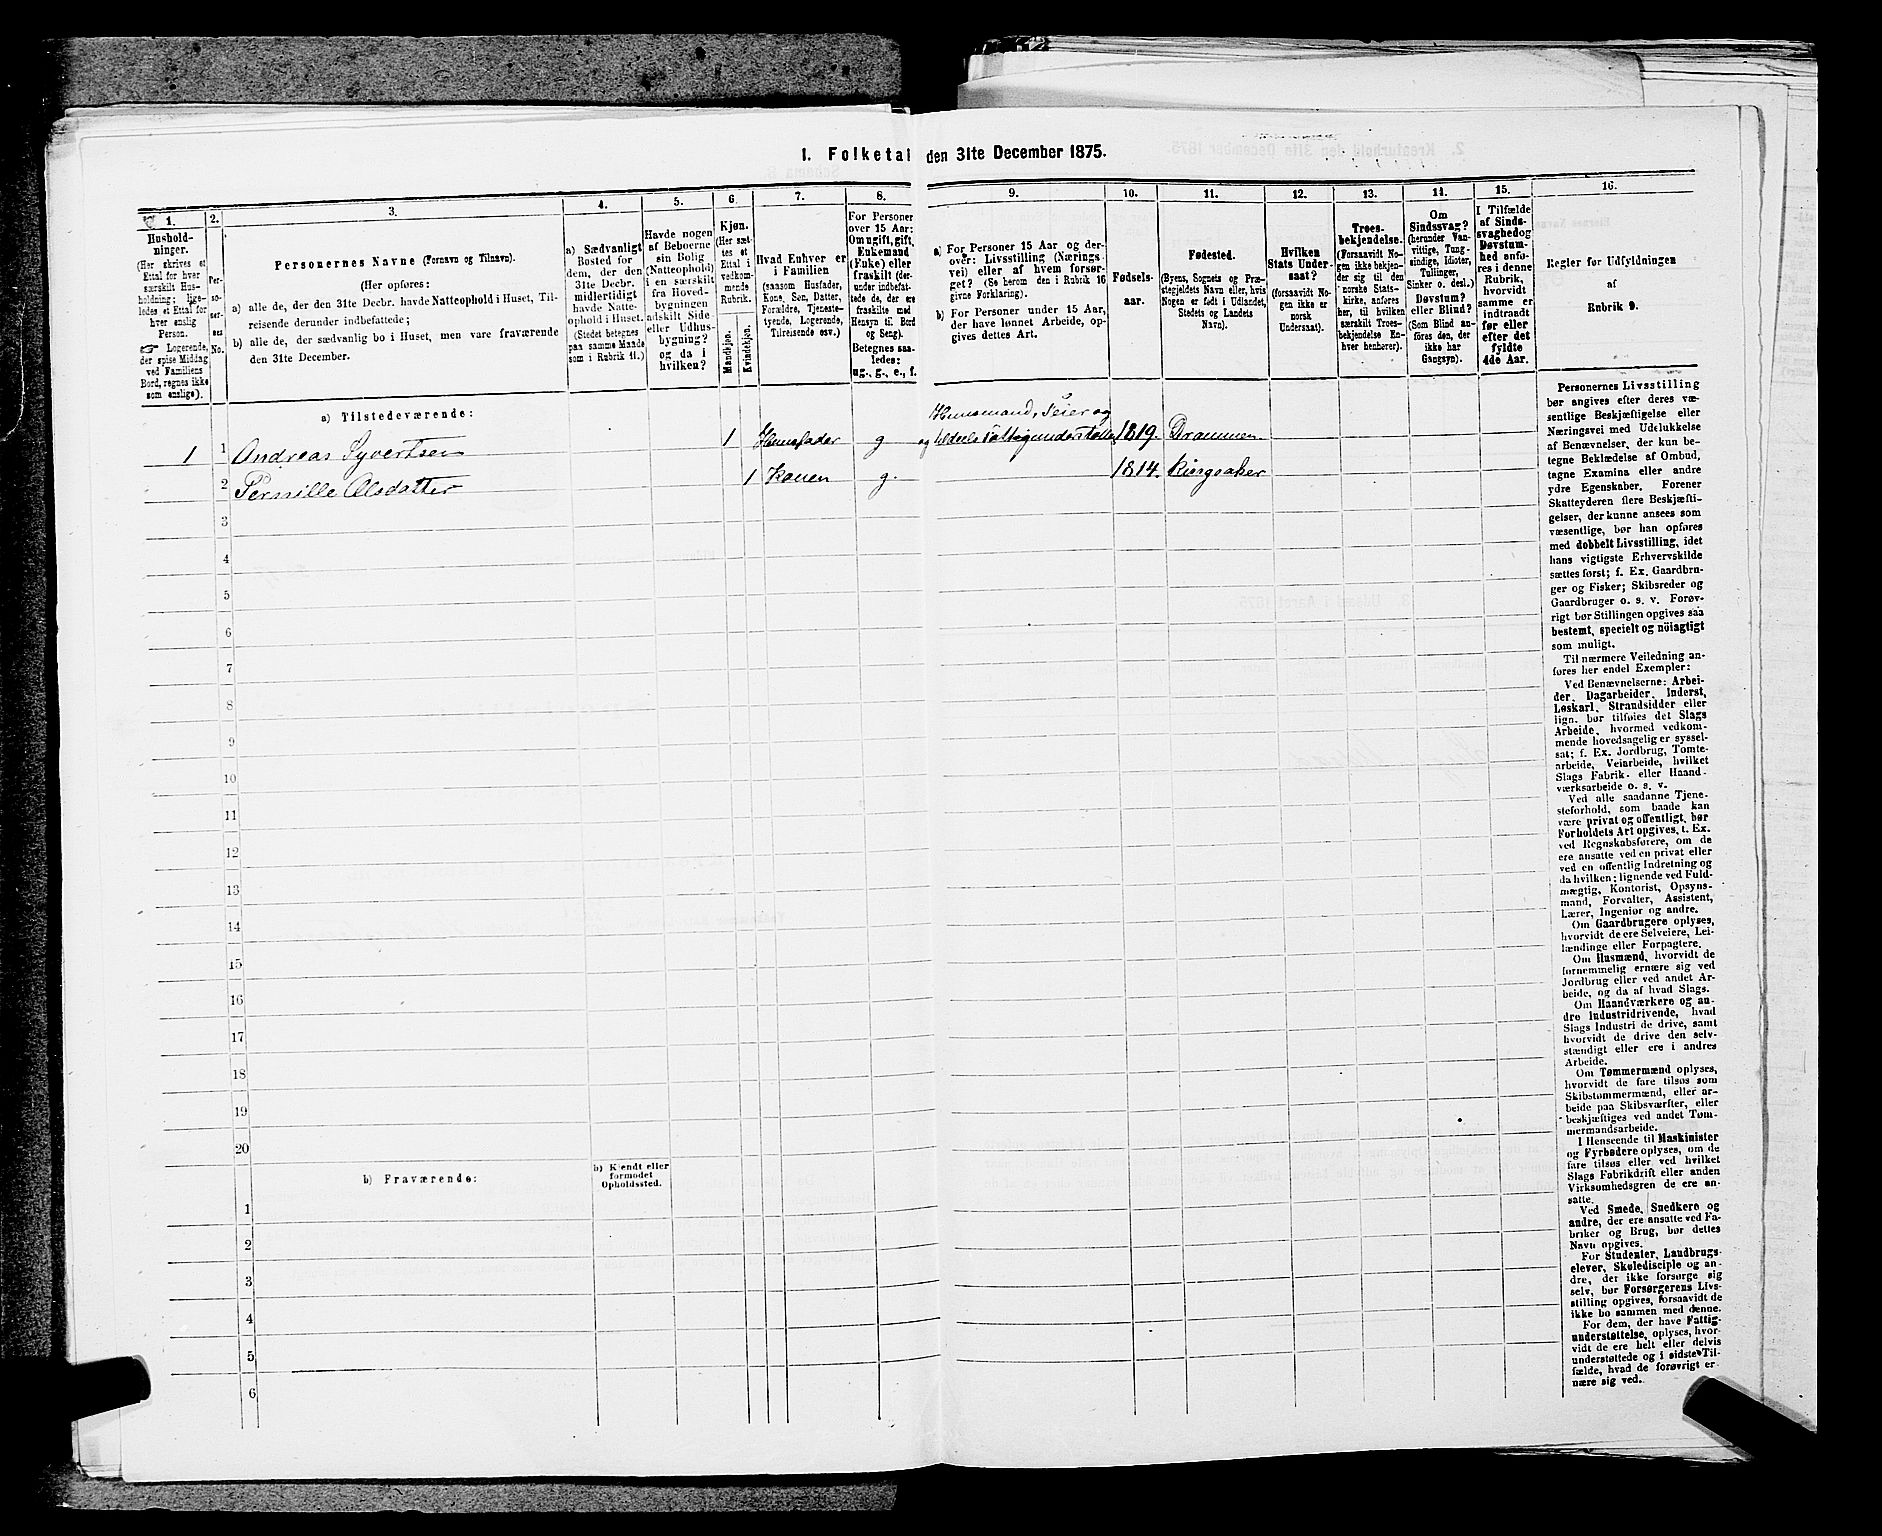 1. Folketal den 31te December 1875.
1.
Hushold-
ninger.
(Her skrives et
Ettal for hver
særskilt Hus-
holdning; lige-
ledes et Ettal for
hver enslig
Person.
Logerende,
der spise Middag
ved Familiens
Bord, regnes ikke
som enslige).
2.
Per-
so-
ner-
nes
No.
3.
Personernes Navne (Fornavn og Tilnavn).
(Her opføres:
a) alle de, der den 31te Decbr. havde Natteophold i Huset, Til-
reisende derunder indbefattede;
b) alle de, der sædvanlig bo i Huset, men vare fraværende
den 31te December.
4.
a) Sædvanligt
Bosted for
dem, der den
31te Decbr.
midlertidigt
havde Natte-
ophold i Huset.
(Stedet betegnes
paa samme Maade
som i Rubrik 11.)
5.
Havde nogen
af Beboerne
sin Bolig
(Natteophold)
i en særskilt
fra Hoved-
bygningen
adskilt Side-
eller Udhus-
bygning?
og da i
hvilken?
6.
Kjøn.
(Her sæt-
tes et
Ettal i
vedkom-
mende
Rubrik.
Mandkjøn.
Kvindekjøn.
7.
Hvad Enhver er
i Familien
(saasom Husfader,
Kone, Søn, Datter,
Forældre, Tjeneste-
tyende, Logerende,
Tilreisende osv.)
8.
For Personer
over 15 Aar:
Om ugift, gift,
Enkemand
(Enke) eller
fraskilt (der-
under indbefat-
tede de, der ere
fraskilte med
Hensyn til Bord
og Seng).
Betegnes saa-
ledes:
ug., g., e., f.
9.
a) For Personer 15 Aar og der-
over: Livsstilling (Nærings-
vei) eller af hvem forsør-
get? (Se herom den i Rubrik 16
givne Forklaring).
b) For Personer under 15 Aar,
der have lønnet Arbeide, op-
gives dettes Art.
10.
Fødsels-
aar.
11.
Fødested.
(Byens, Sognets og Præ-
stegjeldets Navn eller, hvis
Nogen er født i Udlandet,
Stedets og Landets
Navn).
12.
Hvilken
Stats Under-
saat?
(forsaavidt No-
gen ikke er
norsk
Undersaat).
13.
Troes-
bekjendelse.
(Forsaavidt No-
gen ikke bekjen-
der sig til den
norske Stats-
kirke, anføres
her, til hvilken
særskilt Troes-
bekjendelse En-
hver henhører).
14.
Om
Sindssvag?
(herunder Van-
vittige, Tung-
sindige, Idioter,
Tullinger,
Sinker o. desl.)
Døvstum?
eller Blind?
(Som Blind an-
føres den, der
ikke har
Gangsyn).
15.
I Tilfælde
af Sinds-
svaghed og
Døvstum-
hed anfø-
res i denne
Rubrik,
hvorvidt
samme er
indtraadt
før eller
efter det
fyldte
4de Aar.
16.
Regler for Udfyldningen
af
Rubrik 9.
a) Tilstedeværende:
1 1 Andreas Syvertsen 1 Huusfader g Huusmand, Seier og
og tildeels fattigunderstøttet 1819. Drammen
2 Pernille Olsdatter 1 Konen g. 1814. Ringsaker
3
4
5
6
7
8
9
10
11
12
13
14
15
16
17
18
19
20
b) Fraværende:
b) Kjendt eller
formodet
Opholdssted.
1
2
3
4
5
6
Personernes Livsstilling
bør angives efter deres væ-
sentlige Beskjæftigelse eller
Næringsvei med Udelukkelse
af Benævnelser, der kun be-
tegne Beklædelse af Ombud,
tagne Examina eller andre
ydre Egenskaber. Forener
Skatteyderen flere Beskjæfti-
gelser, der kunne ansees som
væsentlige, bør han opføres
med dobbelt Livsstilling, idet
hans vigtigste Erhvervskilde
sættes først; f. Ex. Gaardbru-
ger og Fisker; Skibsreder og
Gaardbruger o. s. v. Forøv-
rigt bør Stillingen opgives saa
bestemt, specielt og nöiagtigt
som muligt.
Til nærmere Veiledning an-
føres her endel Exempler:
Ved Benævnelserne: Arbei-
der, Dagarbeider, Inderst,
Løskarl, Strandsidder eller
lign. bør tilføies det Slags
Arbeide, hvormed vedkom-
mende hovedsagelig er syssel-
sat; f. Ex. Jordbrug, Tomte-
arbeide, Veiarbeide, hvilket
Slags Fabrik- eller Haand-
værksarbeide o. s. v.
Ved alle saadanne Tjene-
steforhold, som baade kan
være privat og offentligt, bør
Forholdets Art opgives, t. Ex.
ved Regnskabsførere, om de
ere ansatte ved en privat eller
ved en offentlig Indretning og
da hvilken; lignende ved Fuld-
mægtig, Kontorist, Opsyns-
mand, Forvalter, Assistent,
Lærer, Ingeniør og andre.
Om Gaardbrugere oplyses,
hvorvidt de ere Selveiere, Lei-
lændinge eller Forpagtere.
Om Husmænd, hvorvidt de
fornemmelig ernære sig ved
Jordbrug eller ved andet Ar-
beide, og da af hvad Slags.
Om Haandværkere og an-
dre Industridrivende, hvad
Slags Industri de drive, samt
hvorvidt de drive den selv-
stændigt eller ere i andres
Arbeide.
Om Tømmermænd oplyses,
hvorvidt de fare tilsøs som
Skibstømmermænd, eller ar-
beide paa Skibsværfter, eller
beskjæftiges ved andet Tøm-
mermandsarbeide.
I Henseende til Maskinister
og Fyrbødere oplyses, om de
fare tilsøs eller ved hvilket
Slags Fabrikdrift eller anden
Virksomhedsgren de ere an-
satte.
Ved Smede, Snedkere og
andre, der ere ansatte ved Fa-
briker og Brug, bør dettes
Navn opgives.
For Studenter, Landbrugs-
elever, Skoledisciple og an-
dre, der ikke forsørge sig
selv, bør Forsørgerens Livs-
stilling opgives, forsaavidt de
ikke bo sammen med denne.
For dem, der have Fattig-
understøttelse, oplyses, hvor-
vidt de ere helt eller delvis
understøttede og i sidste Til-
fælde, hvad de forøvrigt er-
nære sig ved.